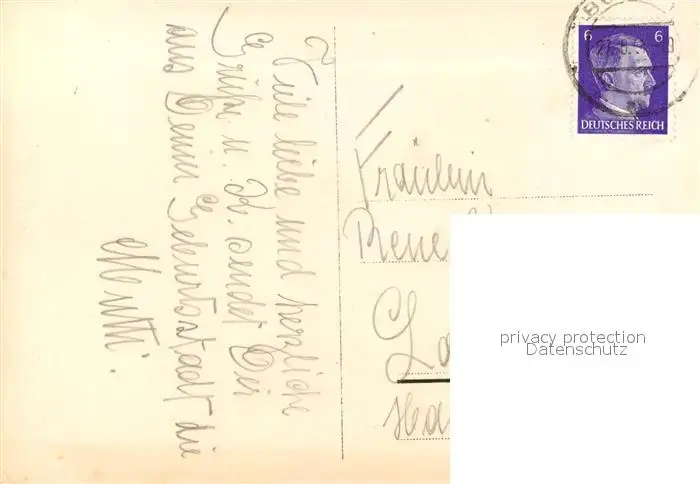 Viele liebe und herzliche
Grüße u. K. sendet Dir
aus Deiner Geburtsstadt die
Mutti.
6 6
DEUTSCHES REICH
Fräulein
Rene
privacy protection
Datenschutz